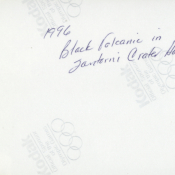 1996
Black Volcanic in
Santorini Crater